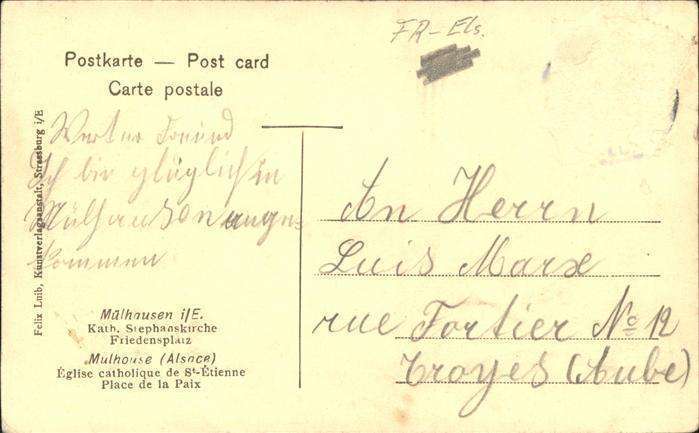 FR-Els.
Postkarte — Post card
Carte postale
Felix Luib, Kunstverlagsanstalt, Strassburg i/E
Werter Freund
Ich bin glüglich in
Mülhausen ange-
kommen
Mülhausen i/E.
Kath. Stephanskirche
Friedensplatz
Mulhouse (Alsace)
Église catholique de St-Étienne
Place de la Paix
An Herrn
Luis Marx
rue Fortier No 12
Troyes (Aube)